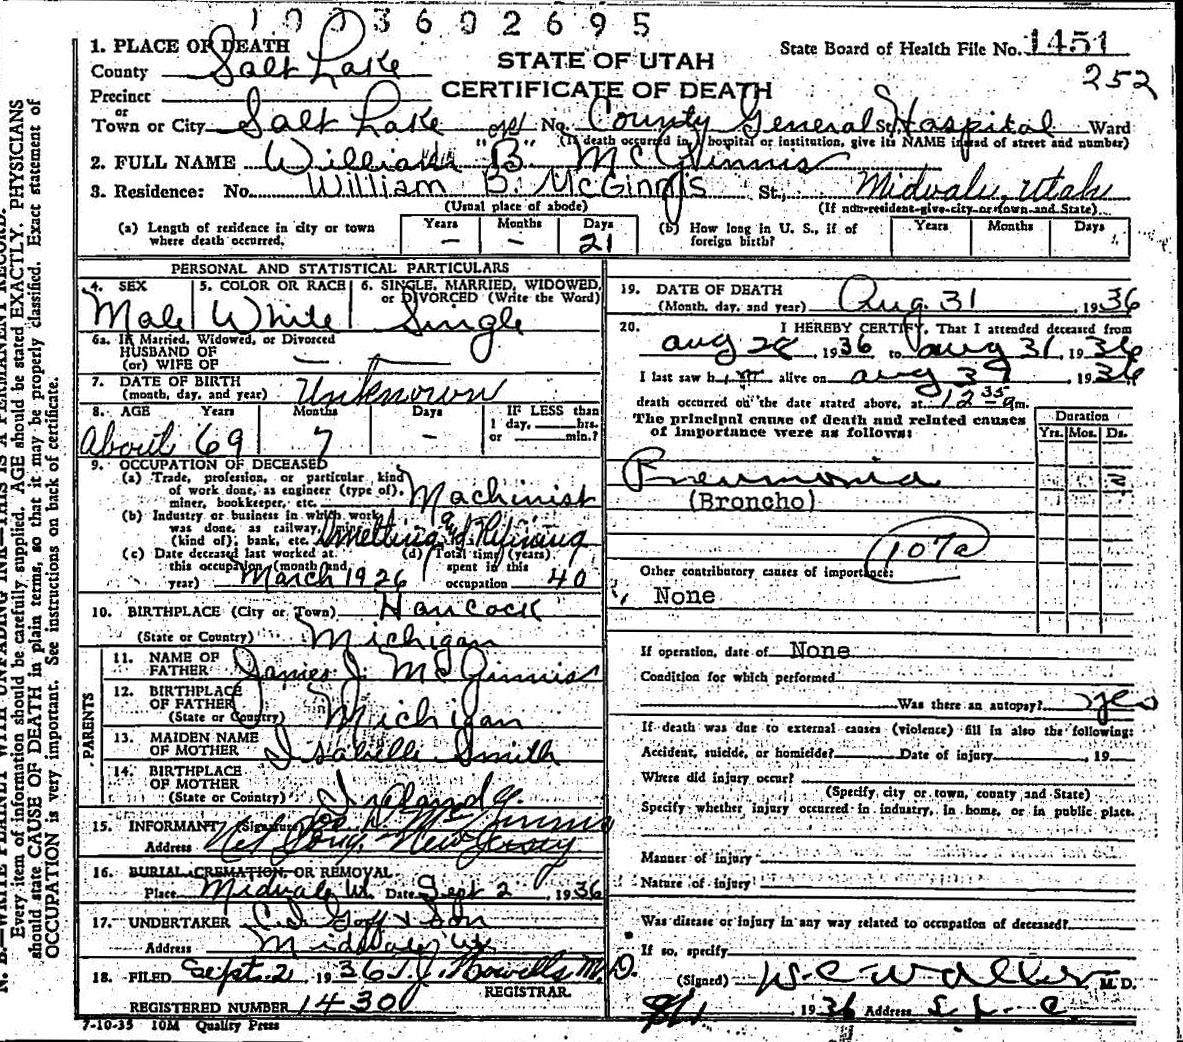 1003602695
1. PLACE OF DEATH
County Salt Lake
Precinct
or
Town or City Salt Lake
STATE OF UTAH
CERTIFICATE OF DEATH
State Board of Health File No. 1451
252
No. County General Hospital St. Ward
(If death occurred in hospital or institution, give its NAME instead of street and number)
2. FULL NAME William "B." McGinnis
3. Residence: No. William B. McGinnis St. Midvale, Utah
(Usual place of abode) (If non-resident give city or town and State)
(a) Length of residence in city or town where death occurred. Years – Months – Days 21
(b) How long in U. S., if of foreign birth? Years Months Days
PERSONAL AND STATISTICAL PARTICULARS
4. SEX Male
5. COLOR OR RACE White
6. SINGLE, MARRIED, WIDOWED, or DIVORCED (Write the Word) Single
6a. If Married, Widowed, or Divorced
HUSBAND OF
(or) WIFE OF –
7. DATE OF BIRTH
(month, day, and year) Unknown
8. AGE Years Months Days IF LESS than
1 day, hrs.
or min.?
About 69 7 –
9. OCCUPATION OF DECEASED
(a) Trade, profession, or particular kind
of work done, as engineer (type of),
miner, bookkeeper, etc. Machinist
(b) Industry or business in which work
was done, as railway, mine
(kind of), bank, etc. Smelting and Refining
(c) Date deceased last worked at
this occupation (month and
year) March 1926
(d) Total time (years)
spent in this
occupation 40
10. BIRTHPLACE (City or Town) Hancock
(State or Country) Michigan
PARENTS
11. NAME OF
FATHER James J. McGinnis
12. BIRTHPLACE
OF FATHER
(State or Country) Michigan
13. MAIDEN NAME
OF MOTHER Isabelle Smith
14. BIRTHPLACE
OF MOTHER
(State or Country) Ireland
15. INFORMANT (Signature) McGinnis
Address New Jersey
16. BURIAL, CREMATION, OR REMOVAL
Place Midvale Ut. Date Sept 2, 1936
17. UNDERTAKER Goff & Son
Address Midvale, Ut
18. FILED Sept. 2 1936 T. J. Howells M. D.
REGISTRAR
REGISTERED NUMBER 1430
7-10-35 10M Quality Press
19. DATE OF DEATH
(Month, day, and year) Aug. 31, 1936
20. I HEREBY CERTIFY, That I attended deceased from
Aug 28, 1936 to Aug 31, 1936
I last saw him alive on Aug 1936
death occurred on the date stated above, at 12 35 am.
The principal cause of death and related causes
of importance were as follows:
Duration
Yrs. Mos. Ds.
Pneumonia
(Broncho)
107a
Other contributory causes of importance:
None
If operation, date of None
Condition for which performed
Was there an autopsy? yes
If death was due to external causes (violence) fill in also the following:
Accident, suicide, or homicide? Date of injury 19
Where did injury occur?
(Specify city or town, county and State)
Specify whether injury occurred in industry, in home, or in public place.
Manner of injury
Nature of injury
Was disease or injury in any way related to occupation of deceased?
If so, specify
(Signed) W. C. Walker M. D.
9/1 1936 Address S. L. C.
N. B.—WRITE PLAINLY WITH UNFADING INK—THIS IS A PERMANENT RECORD.
Every item of information should be carefully supplied. AGE should be stated EXACTLY. PHYSICIANS
should state CAUSE OF DEATH in plain terms, so that it may be properly classified. Exact statement of
OCCUPATION is very important. See instructions on back of certificate.